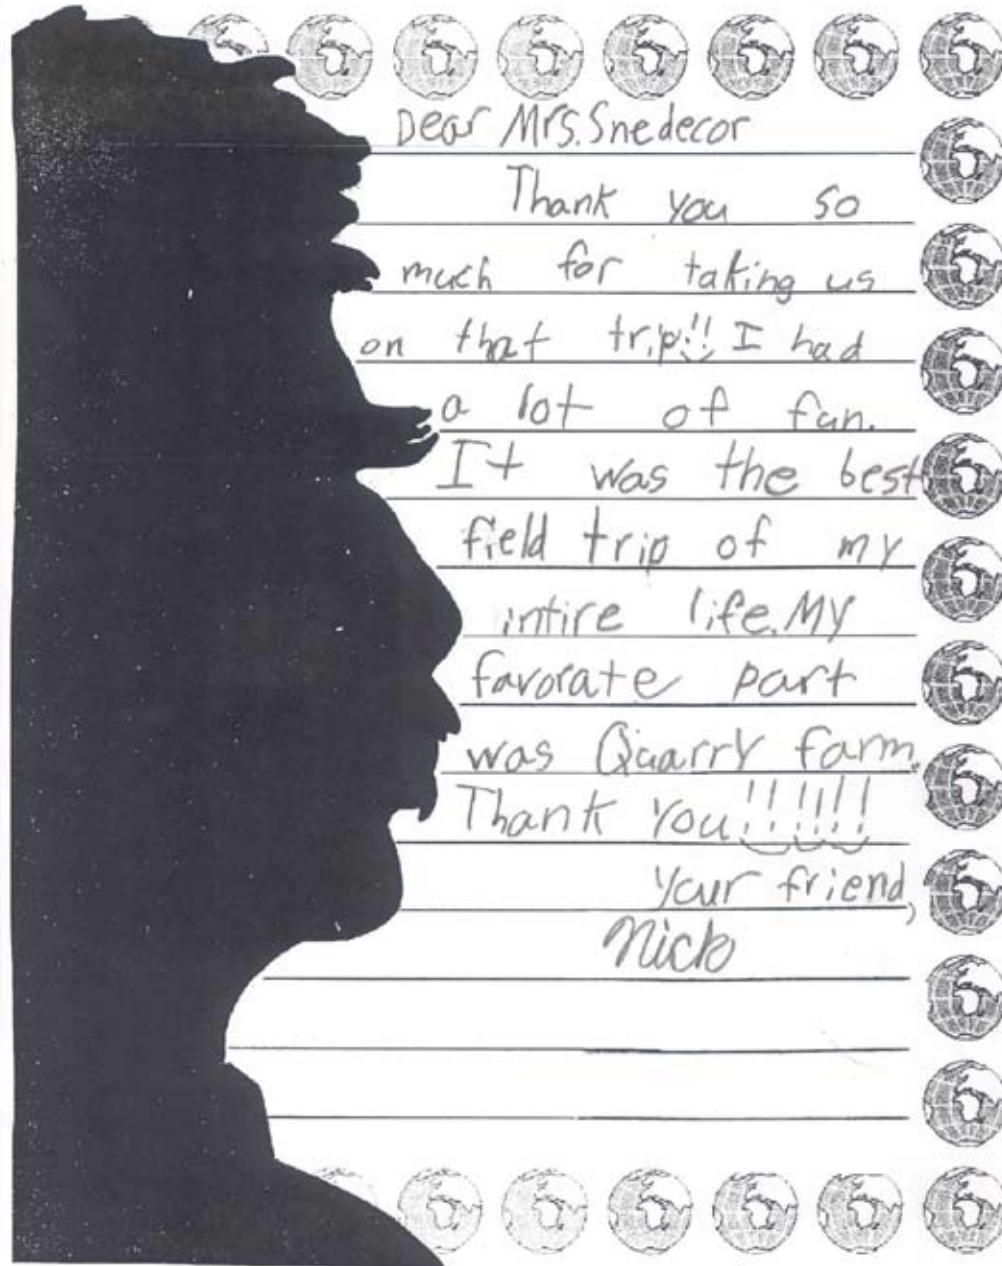 Dear Mrs. Snedecor
Thank you so
much for taking us
on that trip!! I had
a lot of fun.
It was the best
field trip of my
intire life. My
favorate part
was Quarry farm.
Thank You!!!!!!
your friend,
Nick